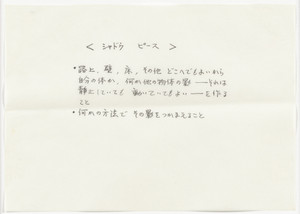 < シャドウ ピース >
・路上、壁、床、その他 どこへでもよいから
自分の体か、何か他の物体の影 ── それは
静止していても 動いていてもよい ── を作る
こと
・何かの方法で その影をつかまえること